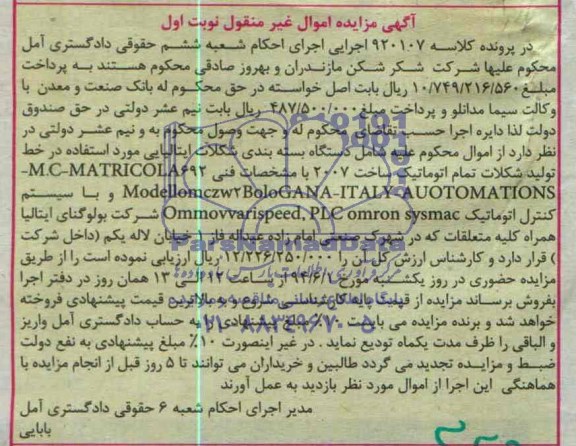 آگهی مزایده اموال غیر منقول نوبت اول
در پرونده کلاسه ۹۲۰۱۰۷ اجرایی اجرای احکام شعبه ششم حقوقی دادگستری آمل
محکوم علیها شرکت شکر شکن مازندران و بهروز صادقی محکوم هستند به پرداخت
مبلغ ۱۰/۷۴۹/۲۱۶/۵۶۰ ریال بابت اصل خواسته در حق محکوم له بانک صنعت و معدن با
وکالت سیما مدانلو و پرداخت مبلغ ۴۸۷/۵۰۰/۰۰۰ ریال بابت نیم عشر دولتی در حق صندوق
دولت لذا دایره اجرا حسب تقاضای محکوم له و جهت وصول محکوم به و نیم عشر دولتی در
نظر دارد از اموال محکوم علیه شامل دستگاه بسته بندی شکلات ایتالیایی مورد استفاده در خط
تولید شکلات تمام اتوماتیک ساخت ۲۰۰۷ با مشخصات فنی M.C-MATRICOLA۶۹۲-
Modellomczw۲BoloGANA-ITALY-AUOTOMATIONS و با سیستم
کنترل اتوماتیک Ommovvarispeed, PLC omron sysmac شرکت بولوگنای ایتالیا
همراه کلیه متعلقات که در شهرک صنعتی امام زاده عبداله فاز ۱ خیابان لاله یکم (داخل شرکت
) قرار دارد و کارشناس ارزش کل آن را ۱۲/۲۲۶/۲۵۰/۰۰۰ ریال ارزیابی نموده است را از طریق
مزایده حضوری در روز یکشنبه مورخ ۹۴/۶/ از ساعت ۱۲ الی ۱۳ همان روز در دفتر اجرا
بفروش برساند مزایده از قیمت پایه کارشناسی شروع و به بالاترین قیمت پیشنهادی فروخته
خواهد شد و برنده مزایده می بایست ۱۰٪ پیشنهادی را به حساب دادگستری آمل واریز
و الباقی را ظرف مدت یکماه تودیع نماید . در غیر اینصورت ۱۰٪ مبلغ پیشنهادی به نفع دولت
ضبط و مزایده تجدید می گردد طالبین و خریداران می توانند تا ۵ روز قبل از انجام مزایده با
هماهنگی این اجرا از اموال مورد نظر بازدید به عمل آورند
مدیر اجرای احکام شعبه ۶ حقوقی دادگستری آمل
بابایی
ParsNamadData
۰۲۱-۸۸۳۴۹۶۷۰-۵